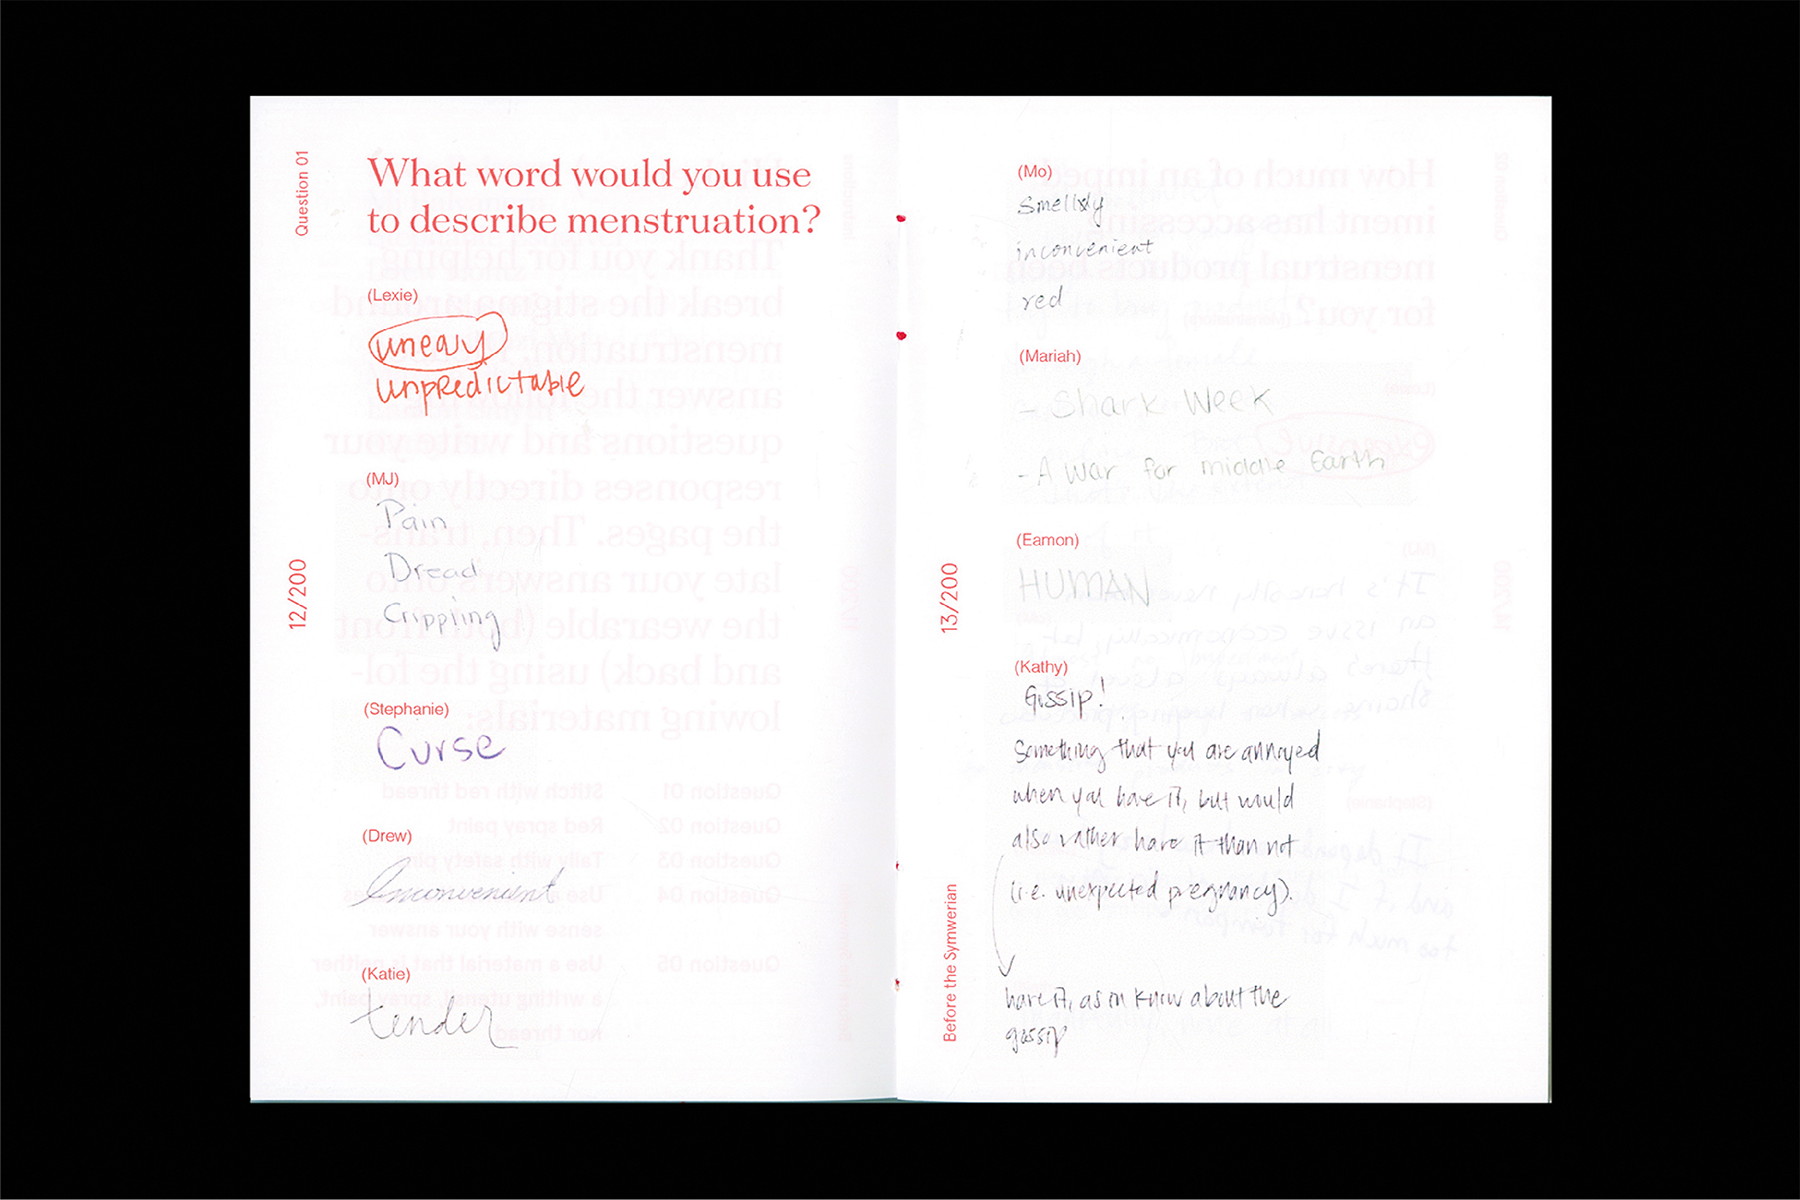 Question 01
What word would you use
to describe menstruation?
(Lexie)
uneasy
unpredictable
(MJ)
Pain
Dread
Crippling
12/200
(Stephanie)
Curse
(Drew)
Inconvenient
(Katie)
tender
(Mo)
Smelly
inconvenient
red
(Mariah)
- Shark Week
- A war for middle Earth
(Eamon)
HUMAN
13/200
(Kathy)
Gossip!
Something that you are annoyed
when you have it, but would
also rather have it than not
(i.e. unexpected pregnancy).
have it, as in know about the
gossip
Before the Symwerian